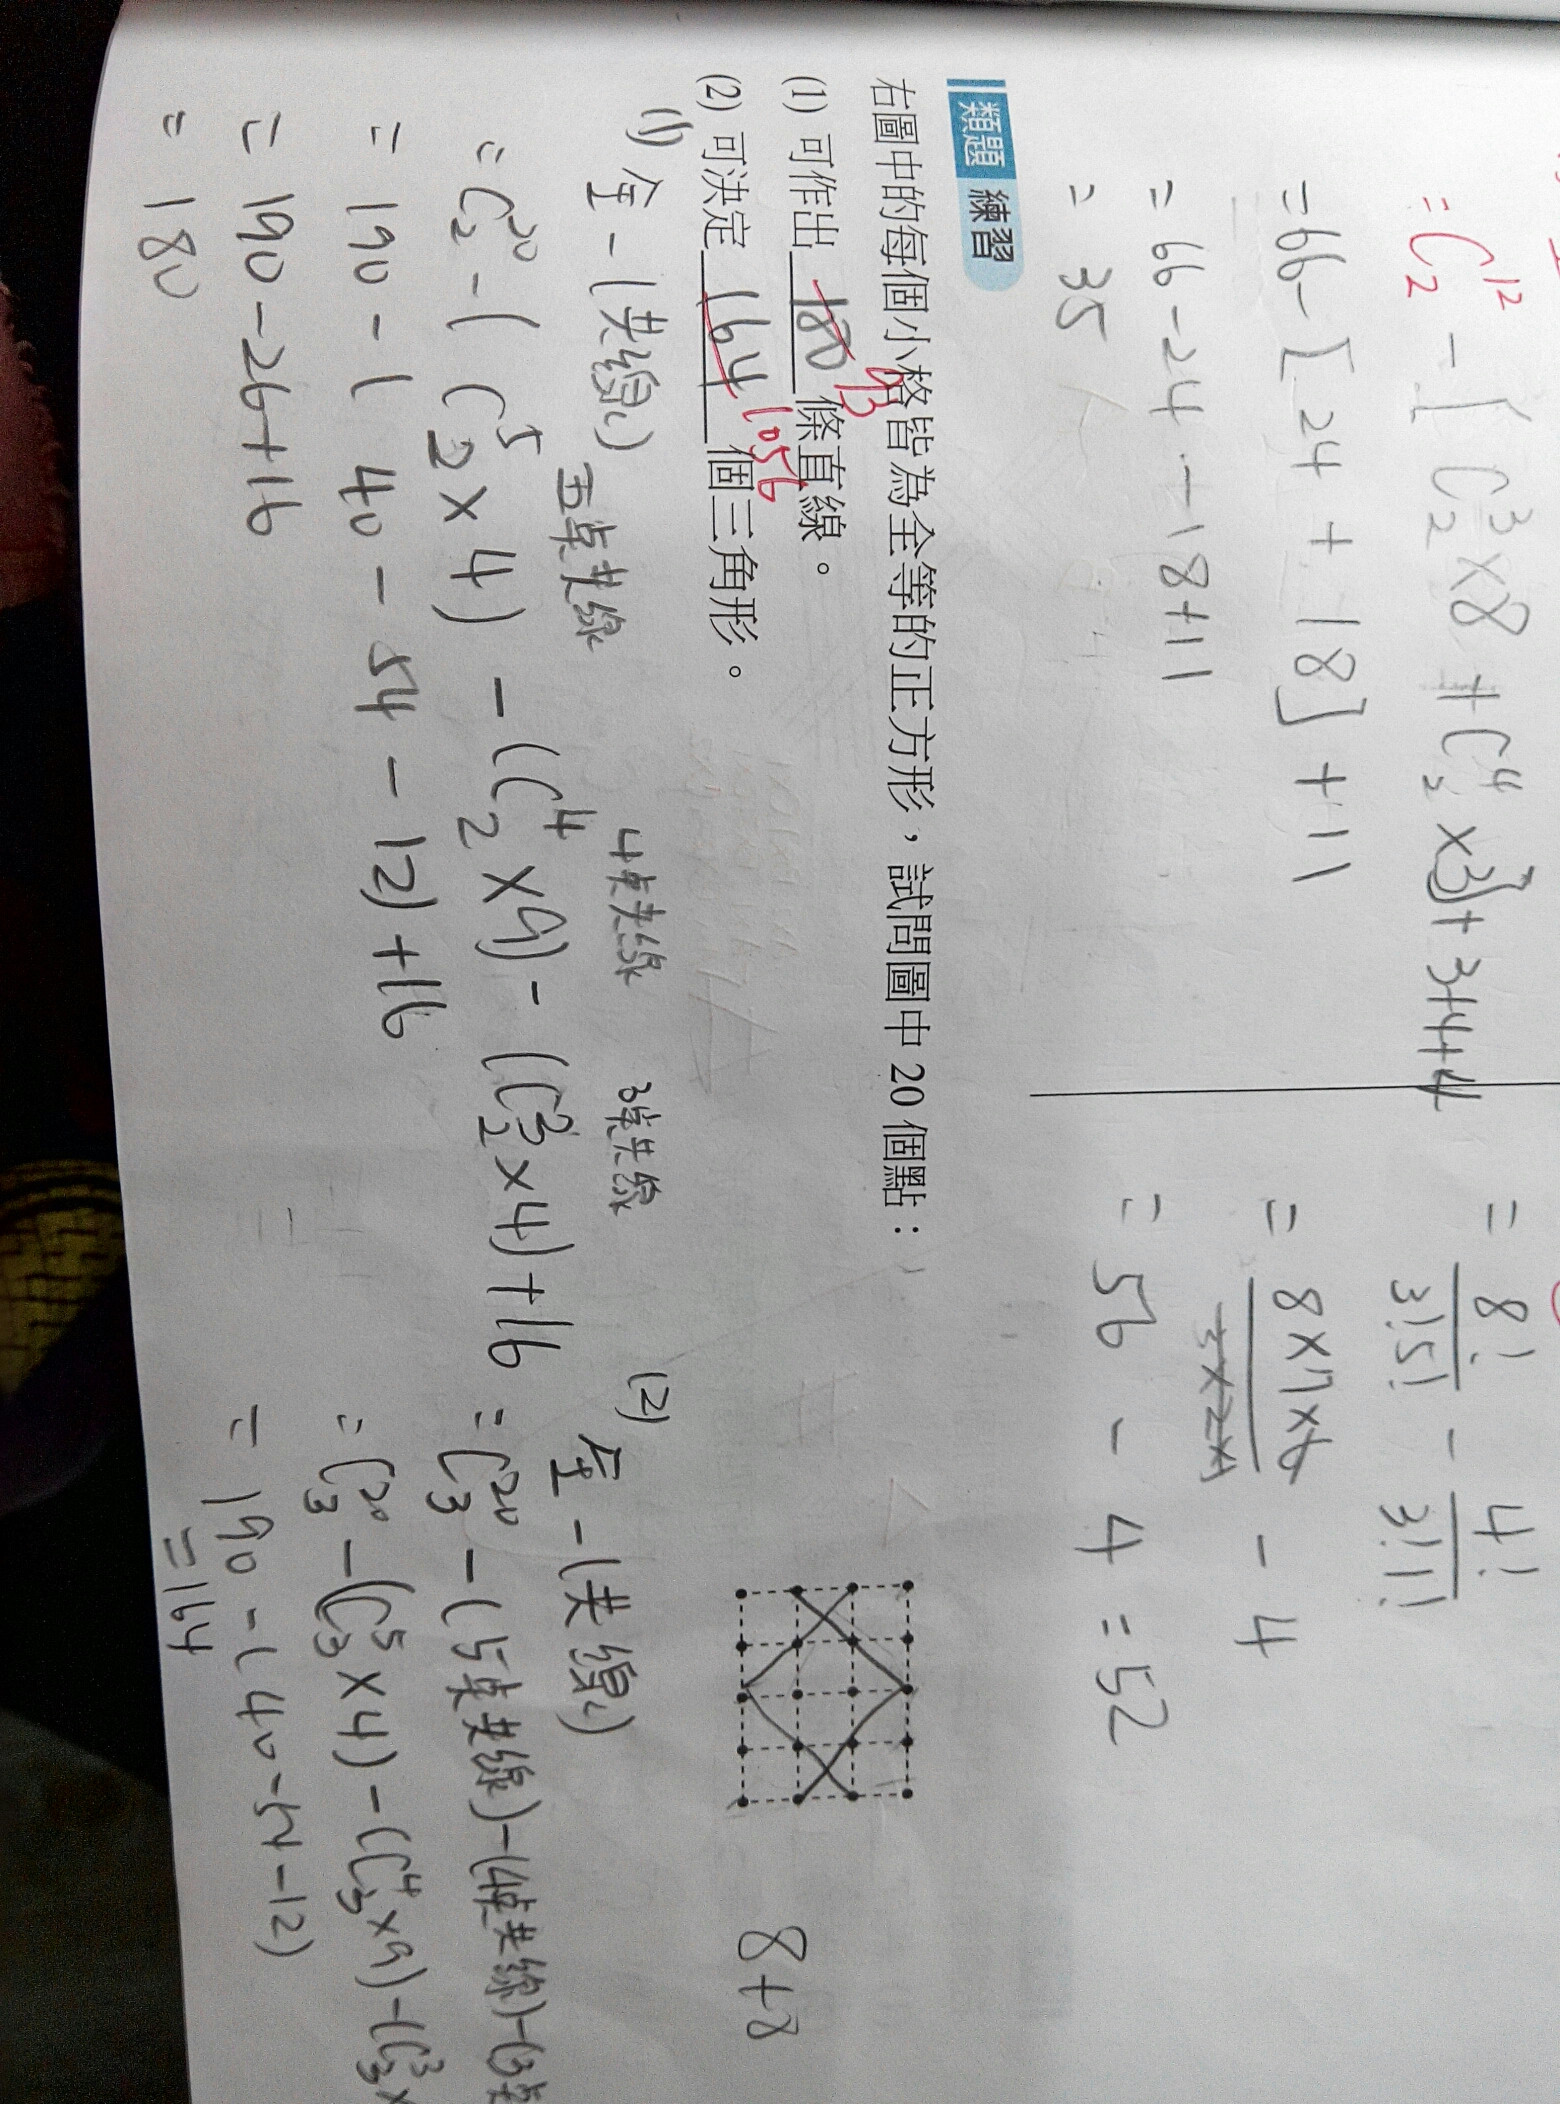 = C₂¹² - [C₂³×8 + C₂⁴×3] + 3+4+4
= 66 - [24 + 18] + 11
= 66 - 24 - 18 + 11
= 35
= 8!/3!5! - 4!/3!1!
= 8×7×6/3×2×1 - 4
= 56 - 4 = 52
類題 練習
右圖中的每個小格皆為全等的正方形，試問圖中 20 個點：
(1) 可作出 180 條直線。
93
(2) 可決定 164 個三角形。
1056
8+8
(1) 全 - (共線)
五点共線 4点共線 3点共線
= C₂²⁰ - (C₂⁵×4) - (C₂⁴×9) - (C₂³×4) + 16
= 190 - (40 - 54 - 12) + 16
= 190 - 26 + 16
= 180
(2) 全 - (共線)
= C₃²⁰ - (5点共線) - (4点共線) - (3点
= C₃²⁰ - (C₃⁵×4) - (C₃⁴×9) - (C₃³×
= 190 - (40 - 54 - 12)
= 164